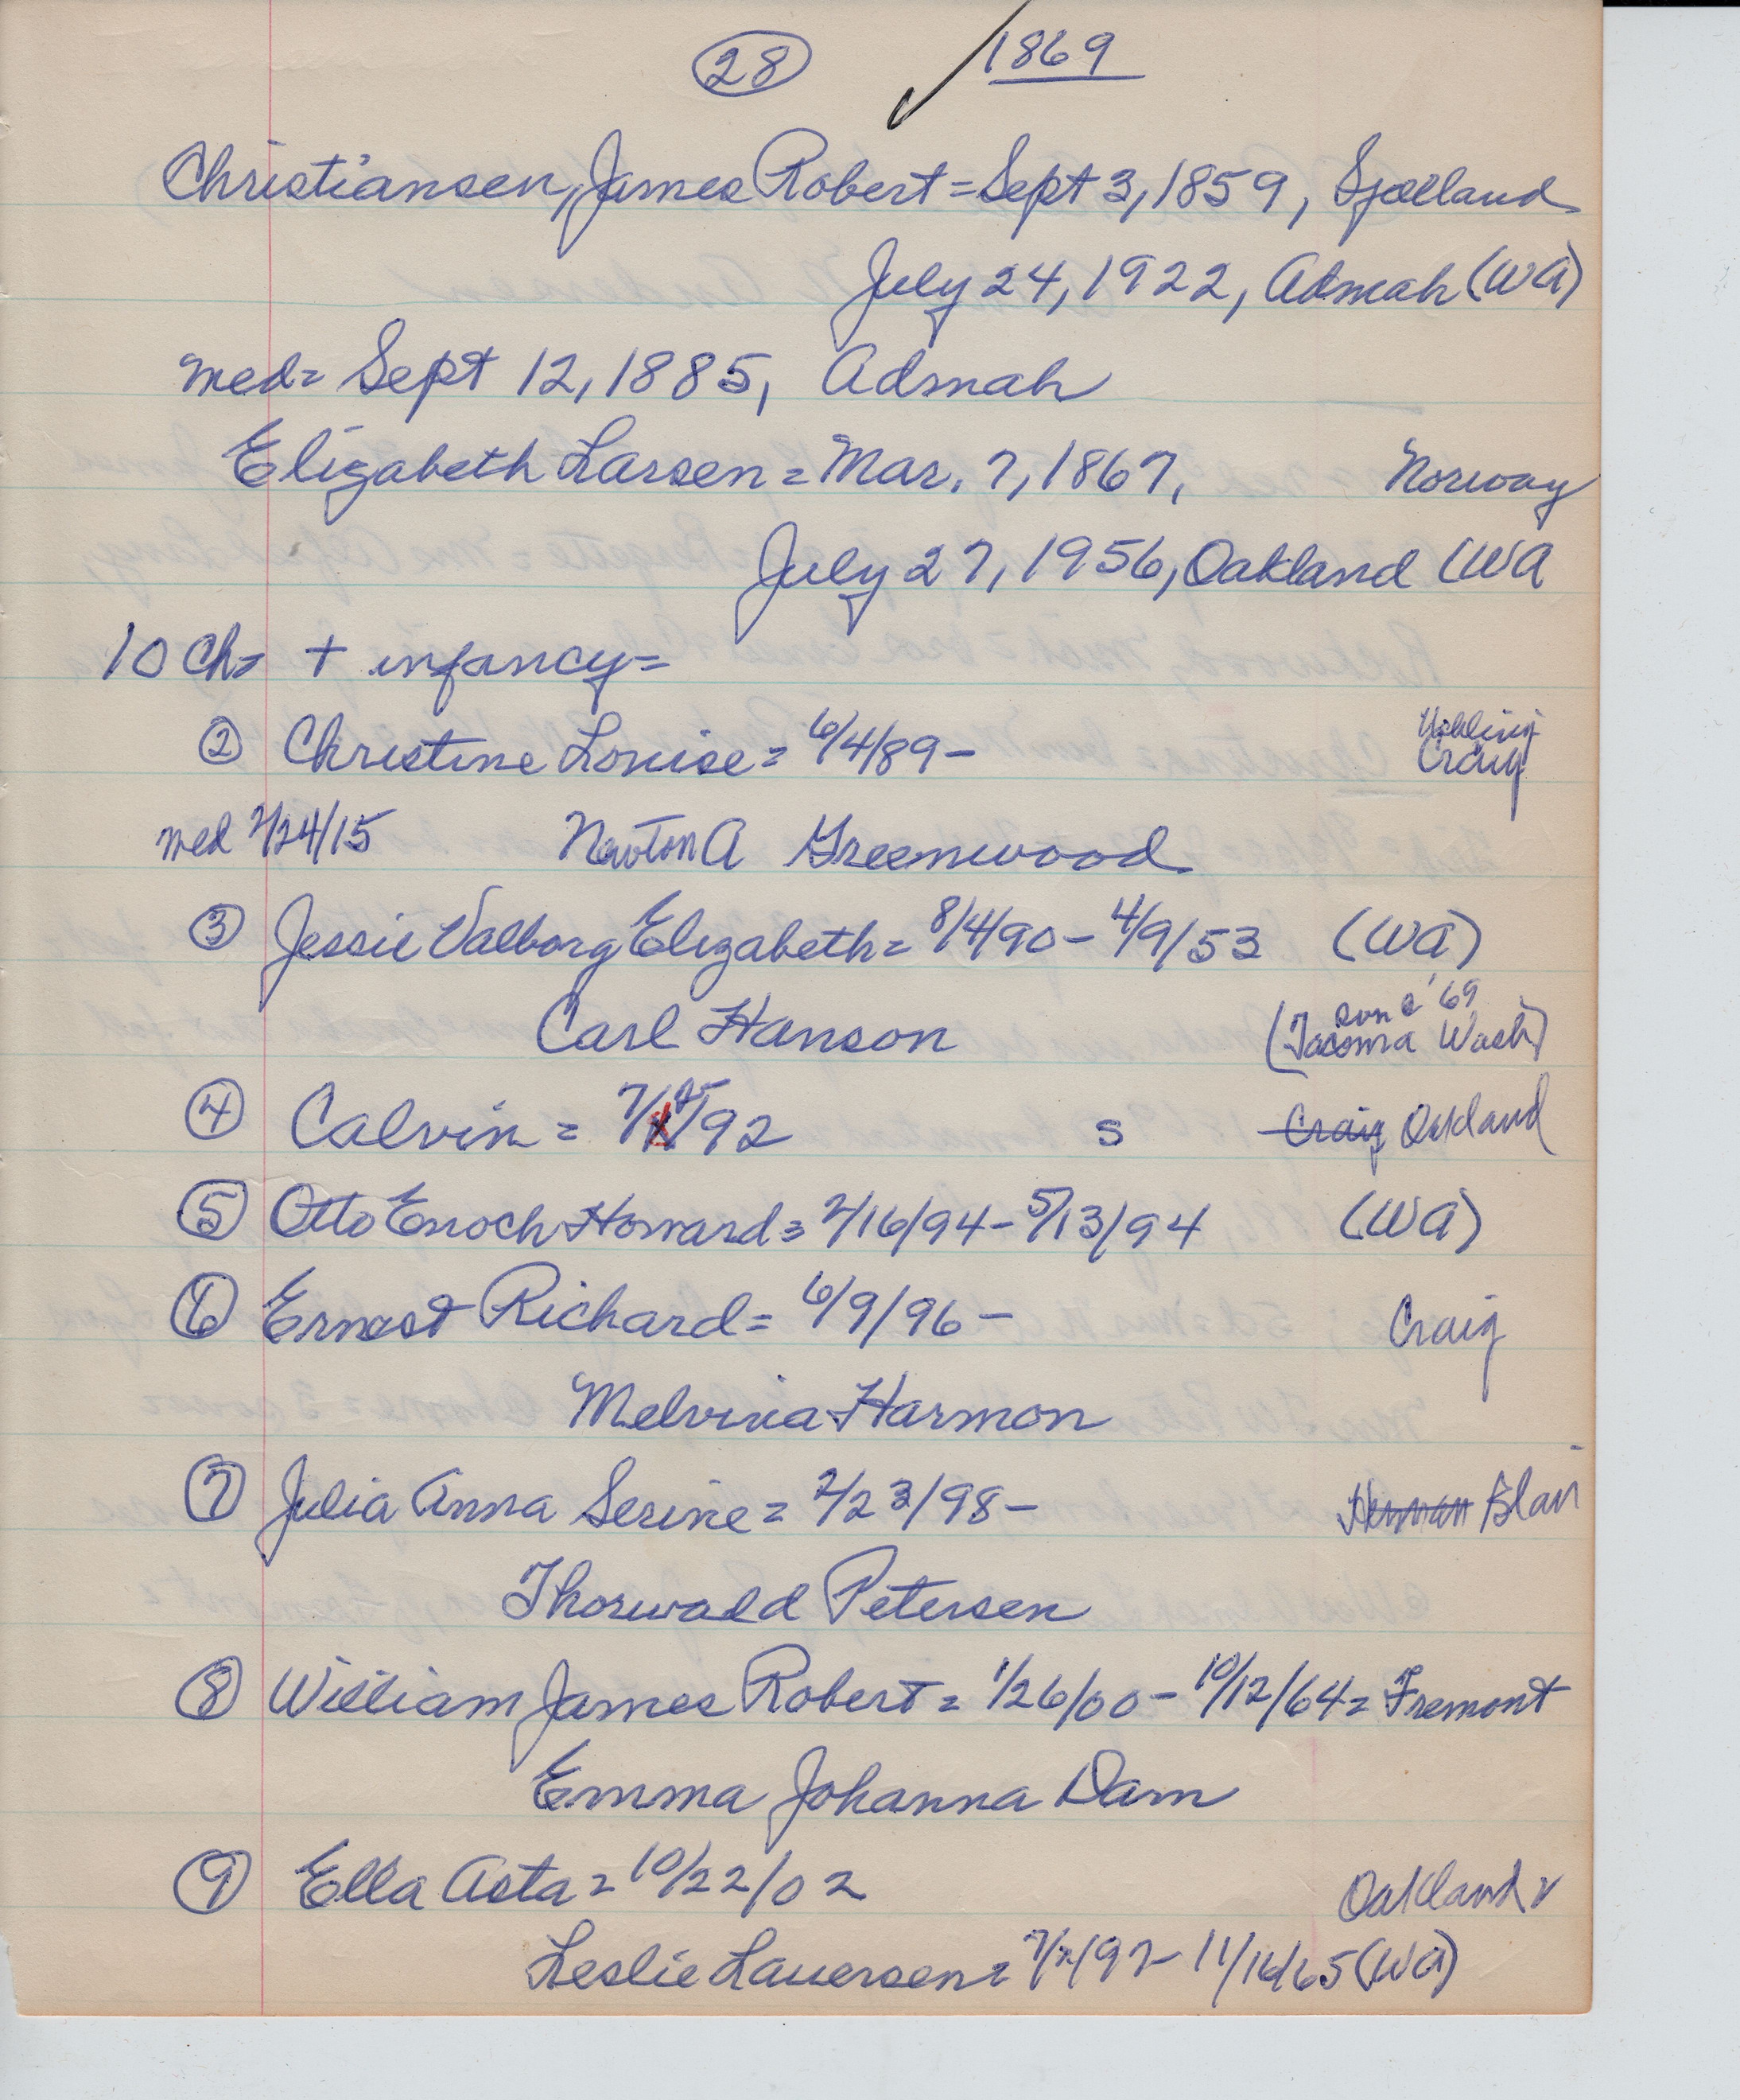 28 1869
Christiansen, James Robert = Sept 3, 1859, Sjælland
July 24, 1922, Admah (WA)
med= Sept 12, 1885, Admah
Elizabeth Larsen = Mar. 7, 1867, Norway
July 27, 1956, Oakland (WA
10 Ch= + infancy=
② Christine Louise = 6/4/89 - Craig
med 2/24/15 Newton A Greenwood
③ Jessie Valborg Elizabeth = 8/4/90 - 4/9/53 (WA)
Carl Hanson (Tacoma Wash)
④ Calvin = 7/15/92 s Craig Oakland
⑤ Otto Enoch Howard = 2/16/94 - 5/13/94 (WA)
⑥ Ernest Richard = 6/9/96 - Craig
Melvina Harmon
⑦ Julia Anna Serine = 2/23/98 - Herman Blair
Thorwald Petersen
⑧ William James Robert = 1/26/00 - 10/12/64 = Fremont
Emma Johanna Dam
⑨ Ella Asta = 10/22/02 Oakland
Leslie Lauersen = 11/16/65 (WA)